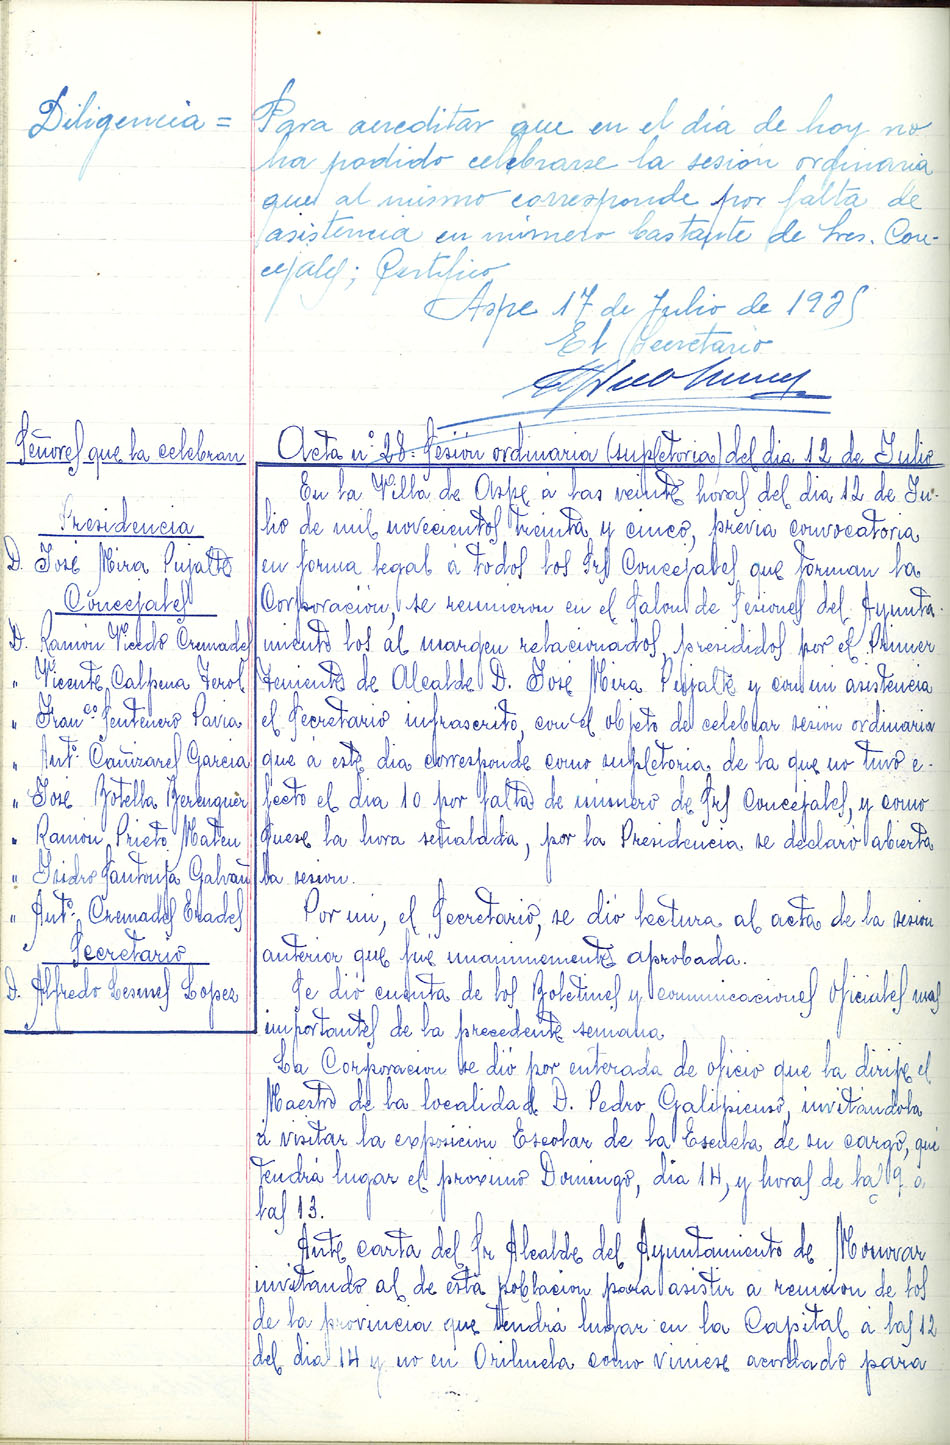 Diligencia = Para acreditar que en el día de hoy no
ha podido celebrarse la sesión ordinaria
que al mismo corresponde por falta de
asistencia en número bastante de Sres. Con-
cejales; Certifico
Aspe 17 de Julio de 1935
El Secretario
Señores que la celebran
Presidencia
D. José Mira Pujalte
Concejales
D. Ramón Vicedo Cremades
" Vicente Calpena Terol
" Fran.co Sentenero Pavia
" Ant.º Cañizares Garcia
" José Botella Berenguer
" Ramón Prieto Mateu
" Isidro Santonja Galvañ
" Ant.º Cremades
Secretario
D. Alfredo Lopez
Acta nº 28. Sesión ordinaria (supletoria) del dia 12 de Julio
En la Villa de Aspe á las veinte horas del dia 12 de Ju-
lio de mil novecientos treinta y cinco, previa convocatoria
en forma legal á todos los Srs Concejales que forman la
Corporación, se reunieron en el Salon de Sesiones del Ayunta-
miento los al margen relacionados, presididos por el Primer
Teniente de Alcalde D. José Mira Pujalte y con mi asistencia
el Secretario infrascrito, con el objeto de celebrar sesión ordinaria
que á este dia corresponde como supletoria de la que no tuvo e-
fecto el dia 10 por falta de número de Srs Concejales, y como
fuese la hora señalada, por la Presidencia se declaró abierta
la sesion.
Por mi, el Secretario, se dió lectura al acta de la sesion
anterior que fué unanimemente aprobada.
Se dió cuenta de los Boletines y comunicaciones oficiales mas
importantes de la precedente semana
La Corporacion se dió por enterada de oficio que la dirije el
Maestro de la localidad D. Pedro Galipienso, invitándola
á visitar la exposicion Escolar de la Escuela de su cargo, que
tendrá lugar el proximo Domingo, dia 14, y horas de la 9 a
las 13.
Ante carta del Sr Alcalde del Ayuntamiento de Monovar
invitando al de esta poblacion para asistir a reunion de los
de la provincia que tendrá lugar en la Capital á las 12
del dia 14 y no en Orihuela como viniese acordado para